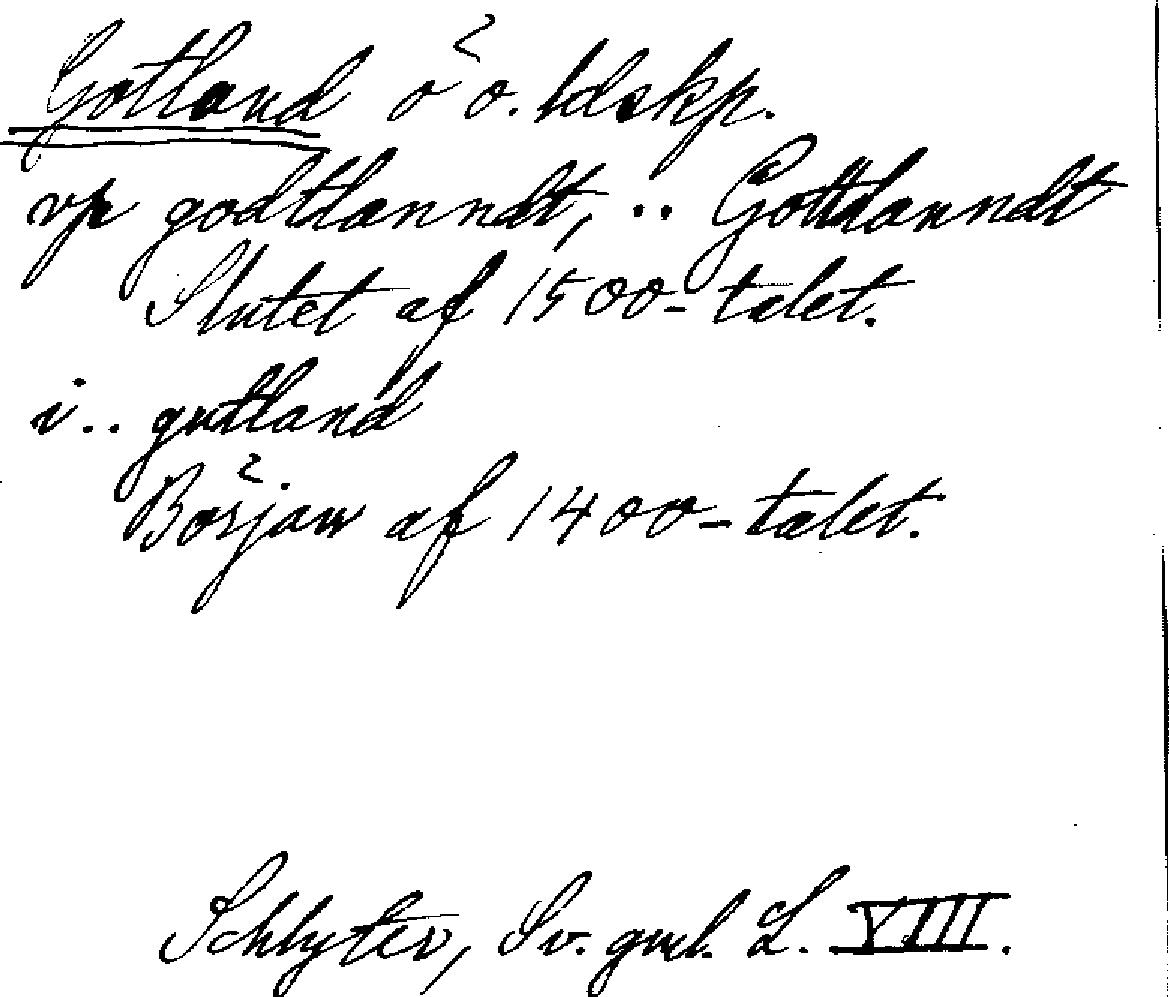 Gotland ö o. ldskp.
vp godtlanndt, .. Gottlanndt
Slutet af 1500-talet.
i .. gutland
Början af 1400-talet.
Schlyter, Sv. gml. L. VIII.